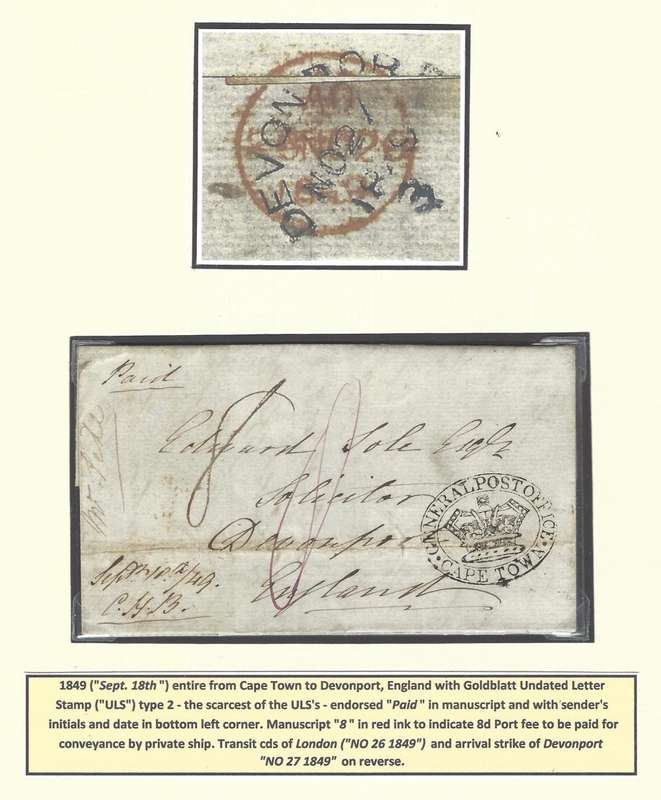 DEVONPOR
NO 27
184
NO 26
Paid
8
8
Edward Sole Esqr
Solicitor
Devonport
England
GENNERAL POST OFFICE.
CAPE TOWN
C.H.B.
1849 ("Sept. 18th") entire from Cape Town to Devonport, England with Goldblatt Undated Letter
Stamp ("ULS") type 2 - the scarcest of the ULS's - endorsed "Paid" in manuscript and with sender's
initials and date in bottom left corner. Manuscript "8" in red ink to indicate 8d Port fee to be paid for
conveyance by private ship. Transit cds of London ("NO 26 1849") and arrival strike of Devonport
"NO 27 1849" on reverse.